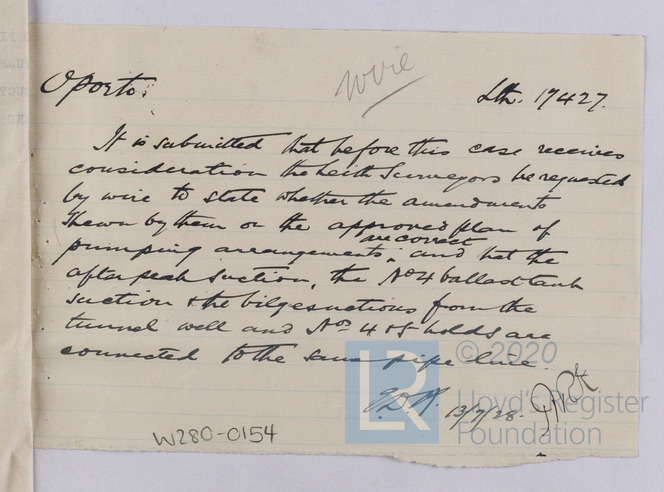 wire
Oporto. Lth. 17427.
It is submitted that before this case receives
consideration the Leith Surveyors be requested
by wire to state whether the amendments
shewn by them on the approved plan of
are correct
pumping arrangements, and that the
after peak suction, the No 4 ballast tank
suction & the bilge suctions from the
tunnel well and Nos 4 & 5 holds are
connected to the same pipe line.
13/7/28.
W280-0154
© 2020
LR
Lloyd's Register
Foundation